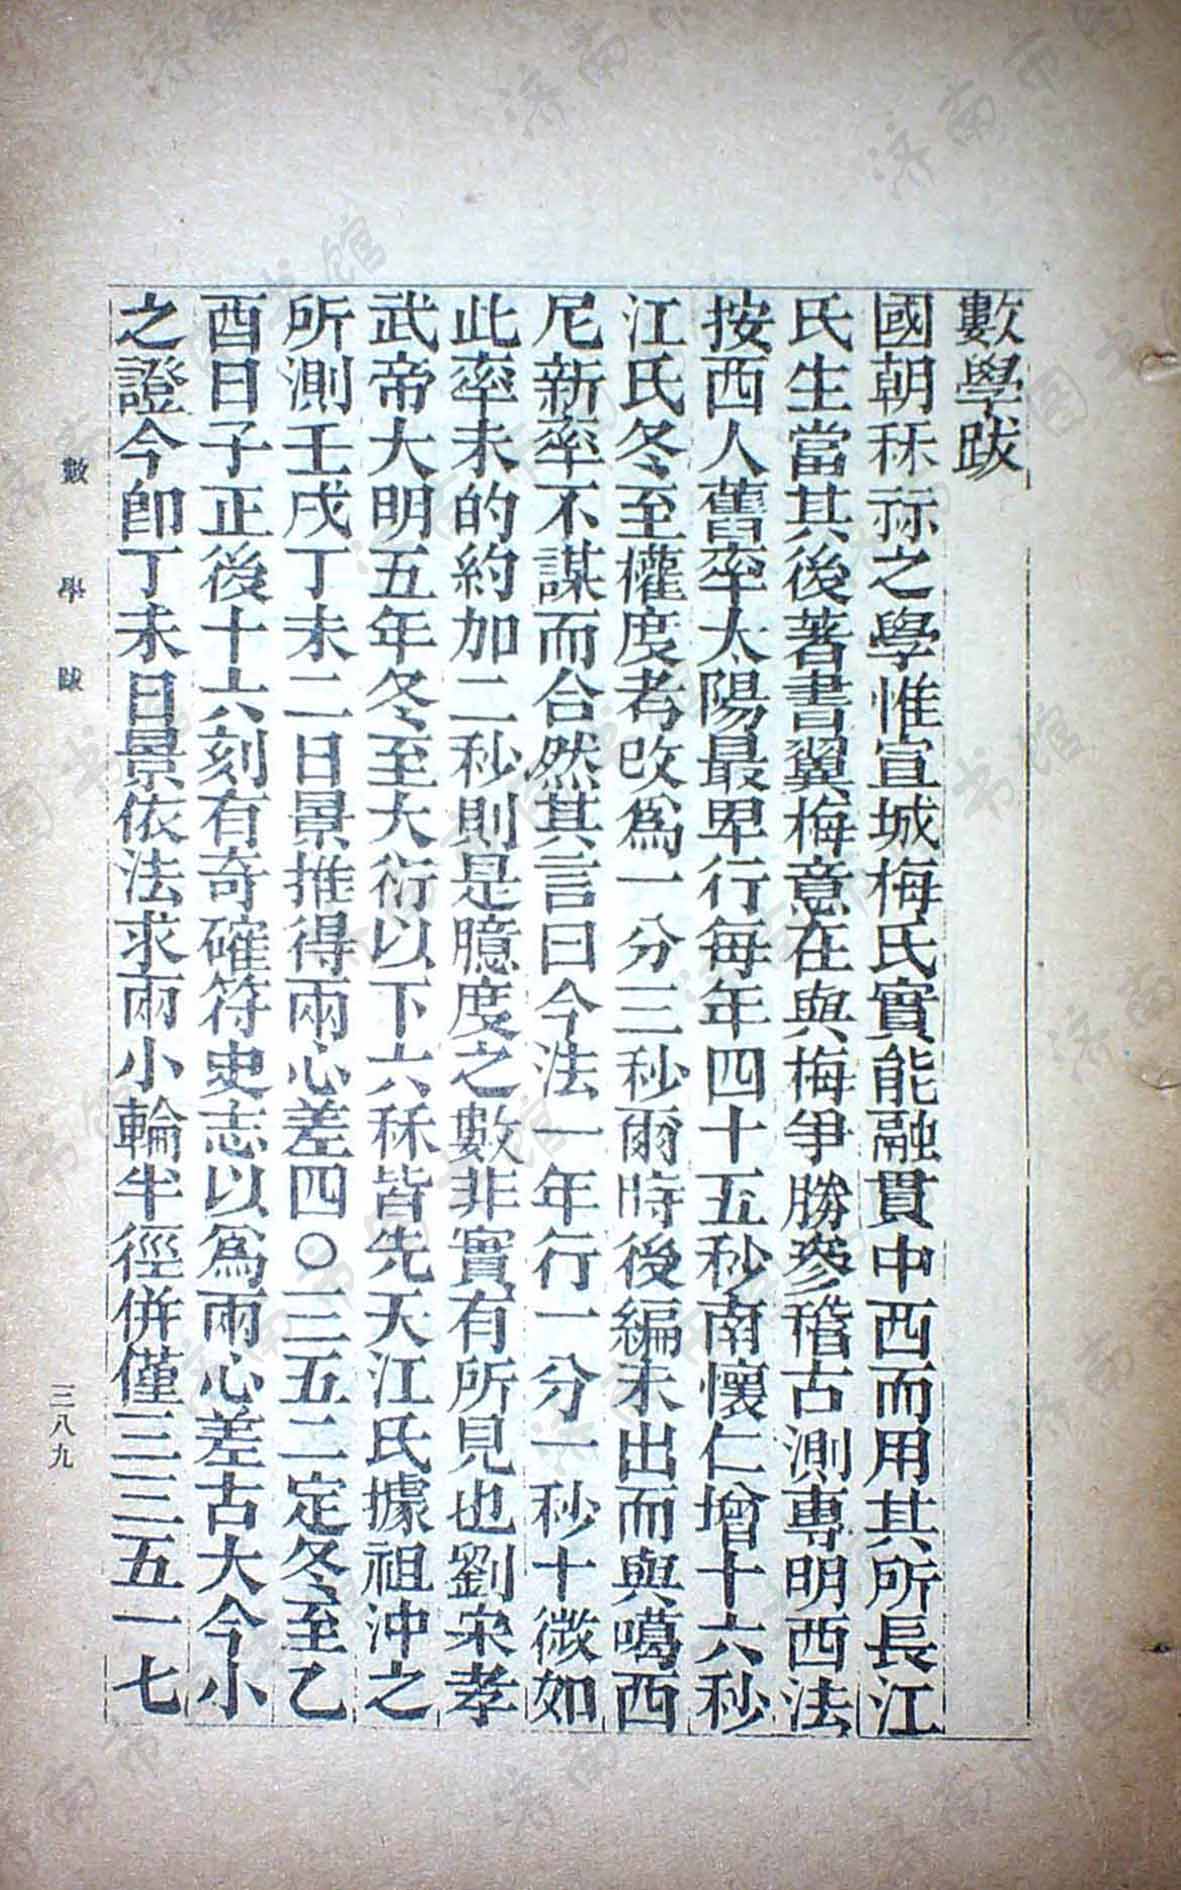 數學跋
國朝秝祘之學惟宣城梅氏實能融貫中西而用其所長江
氏生當其後著書翼梅意在與梅爭勝參稽古測專明西法
按西人舊率太陽最卑行每年四十五秒南懷仁增十六秒
江氏冬至權度考改爲一分三秒爾時後編未出而與噶西
尼新率不謀而合然其言曰今法一年行一分一秒十微如
此率未的約加二秒則是臆度之數非實有所見也劉宋孝
武帝大明五年冬至大衍以下六秝皆先天江氏據祖沖之
所測壬戌丁未二日景推得兩心差四〇三五二定冬至乙
酉日子正後十六刻有奇確符史志以爲兩心差古大今小
之證今卽丁未日景依法求兩小輪半徑併僅三三五一七
數學跋
三八九
济南市图书馆